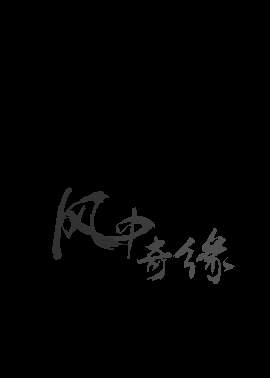 风中奇缘